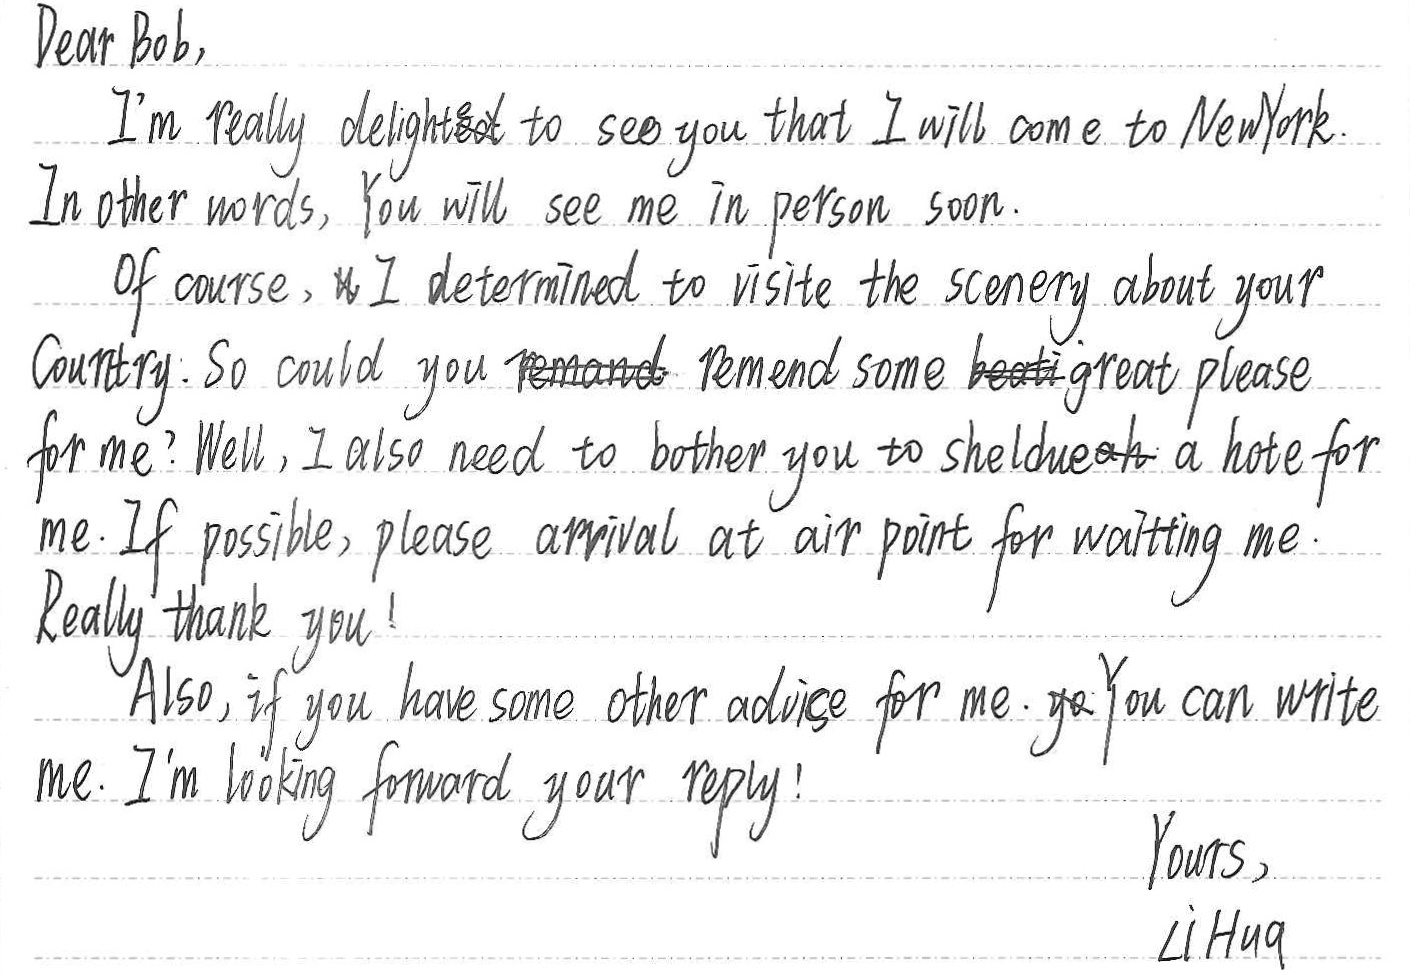 Dear Bob,
I'm really delighted to see you that I will come to NewYork.
In other words, You will see me in person soon.
Of course, I determined to visite the scenery about your
Country. So could you remend some great please
for me? Well, I also need to bother you to sheldue a hote for
me. If possible, please arrival at air point for waitting me.
Really thank you!
Also, if you have some other advice for me. You can write
me. I'm looking forward your reply!
Yours,
Li Hua